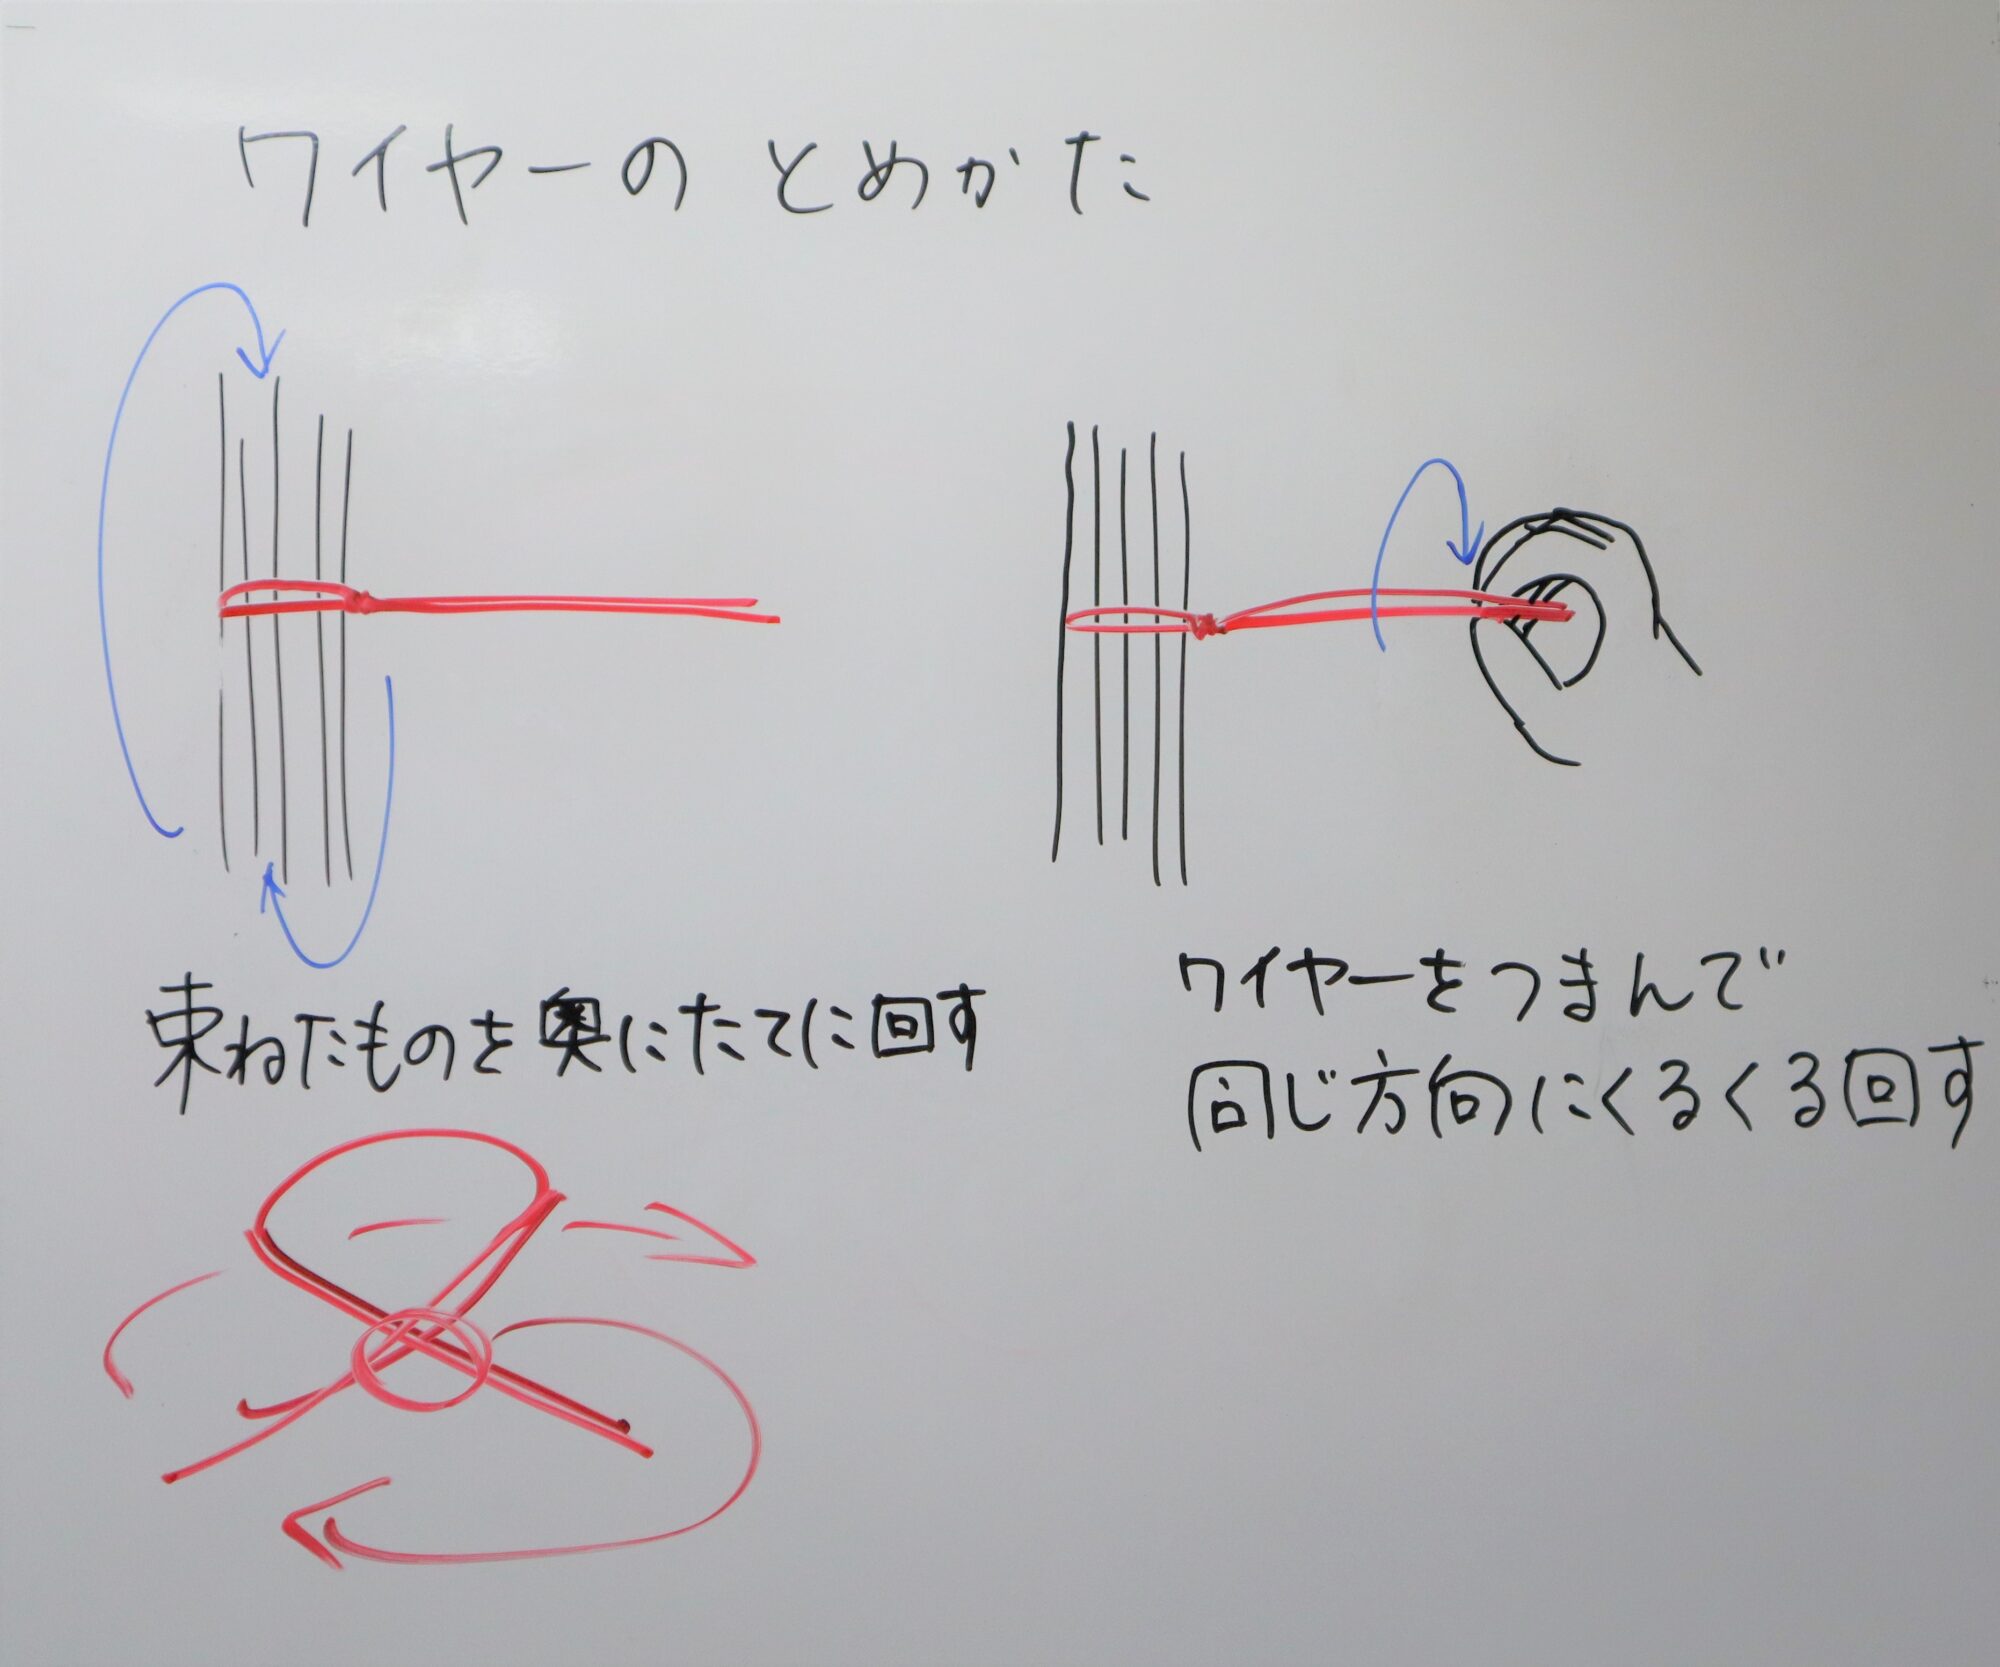 ワイヤーのとめかた
束ねたものを奥にたてに回す
ワイヤーをつまんで
同じ方向にくるくる回す